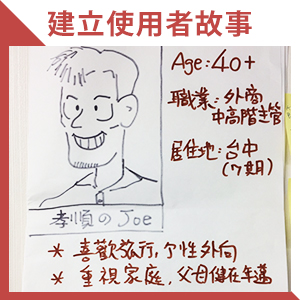 建立使用者故事
Age: 40+
職業: 外商
中高階主管
居住地: 台中
(7期)
孝順の Joe
* 喜歡旅行, 个性外向
* 重視家庭, 父母健在年邁